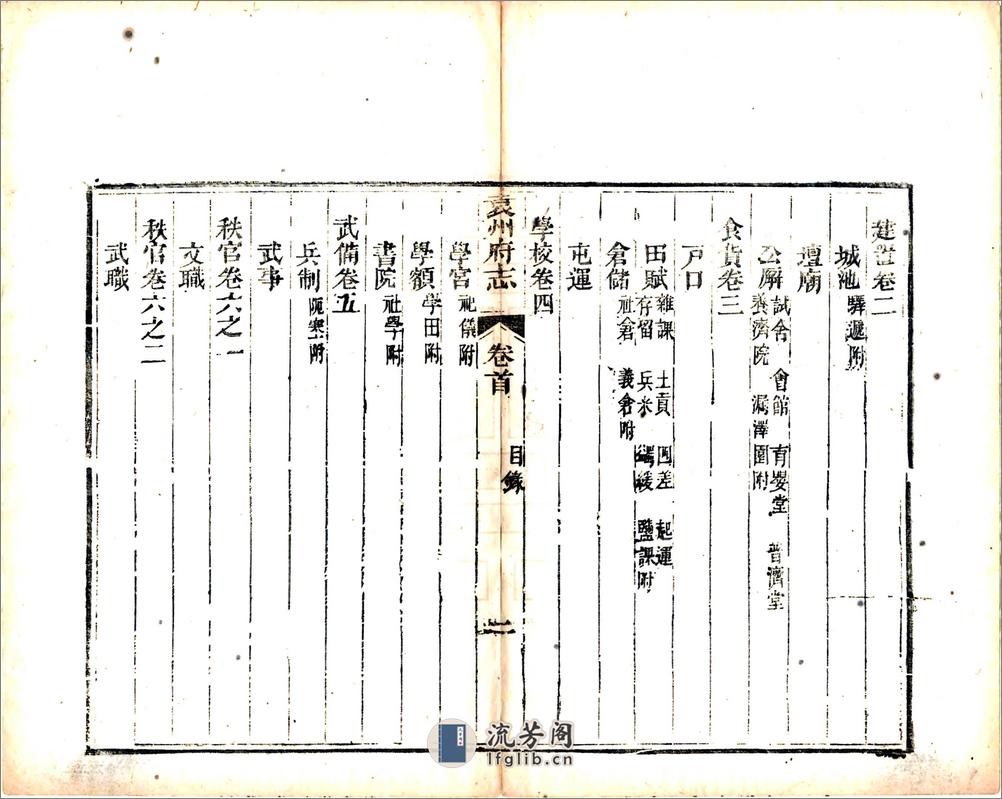 建置卷二
城池驛遞附
壇廟
公廨試舍 會館 育嬰堂 普濟堂
養濟院 漏澤園附
食貨卷三
戸口
田賦雜課 土貢 四差 起運
存留 兵米 蠲緩 鹽課附
倉儲社倉 義倉附
屯運
學校卷四
袁州府志 卷首 目錄 二
學宮祀儀附
學額學田附
書院社學附
武備卷五
兵制阨塞附
武事
秩官卷六之一
文職
秩官卷六之二
武職
流芳阁
lfglib.cn